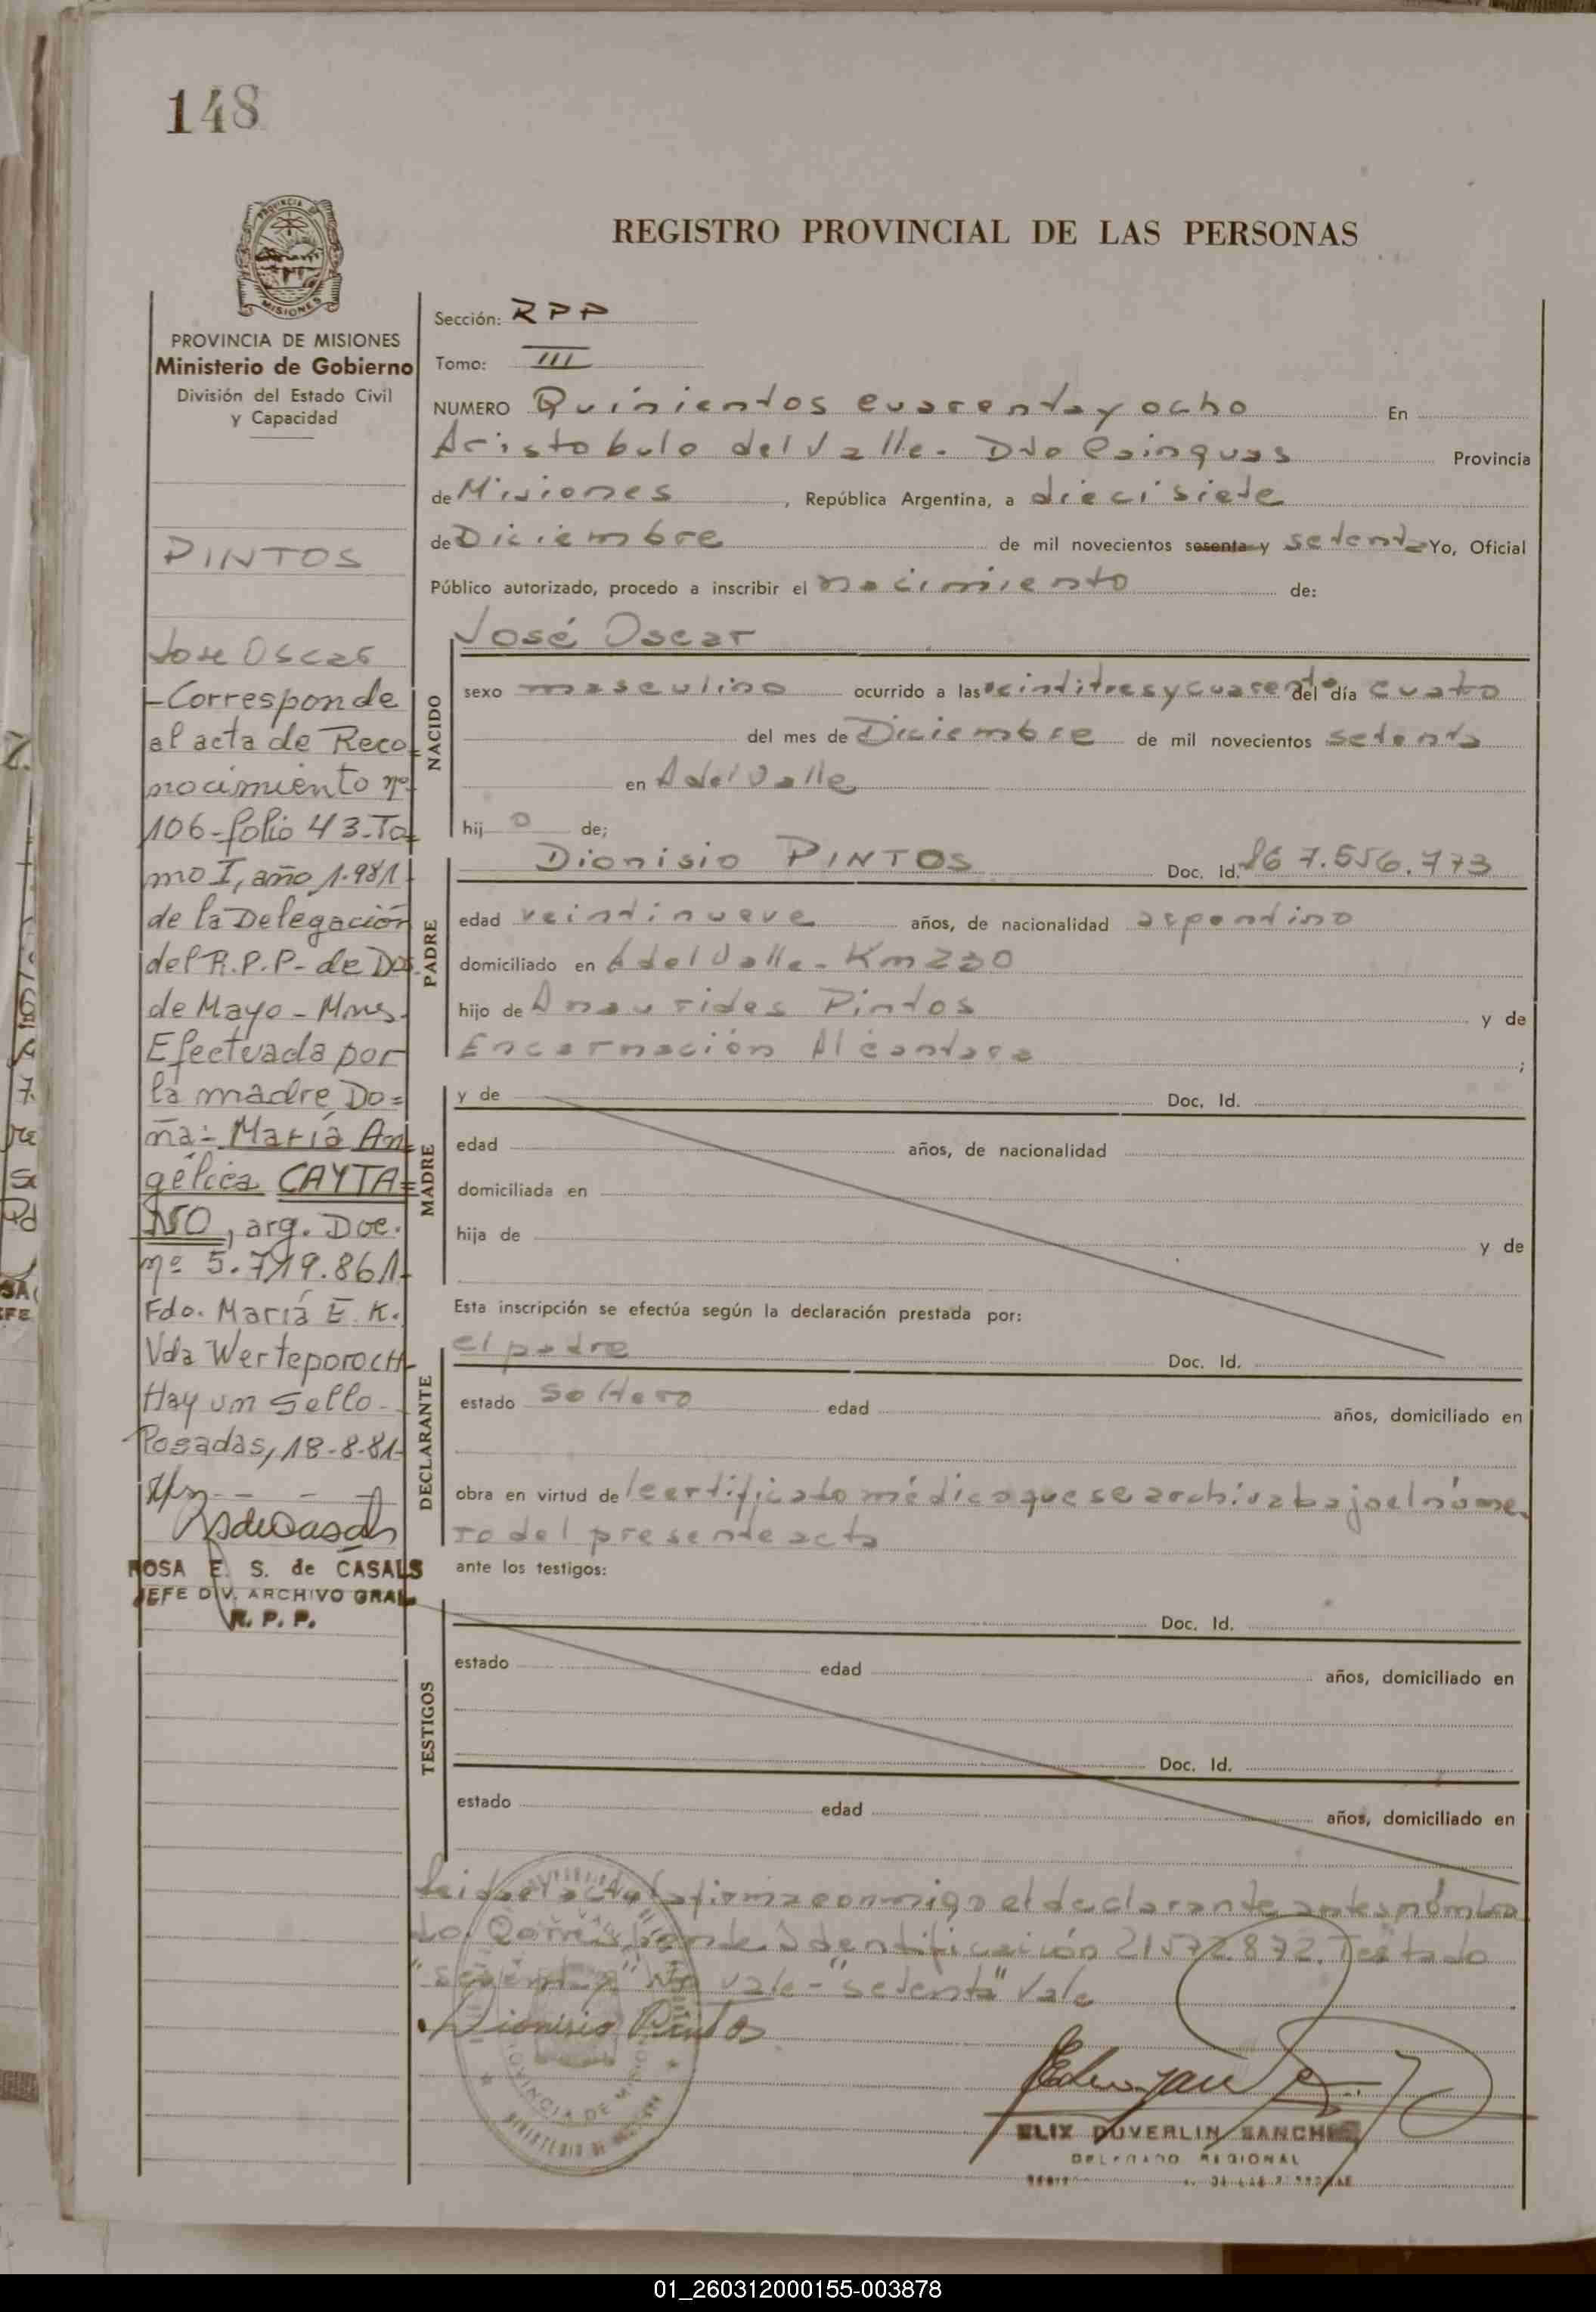 148
PROVINCIA DE MISIONES
Ministerio de Gobierno
División del Estado Civil
y Capacidad
PINTOS
Jose Oscar
-Corresponde
al acta de Reco-
nocimiento nº
106-folio 43-To=
mo I, año 1.981
de la Delegación
del R.P.P- de Dos
de Mayo - Mnes.
Efectuada por
la madre Do=
ña:- María An
gélica CAYTA=
NO, arg. Doc.
nº 5.719.861-
Fdo. María E. K.
Vda Werteporoch-
Hay un Sello-
Posadas, 18-8-81-
ROSA E. S. de CASALS
JEFE DIV. ARCHIVO GRAL.
R. P. P.
REGISTRO PROVINCIAL DE LAS PERSONAS
Sección: RPP
Tomo: III
NUMERO Quinientos cuarenta y ocho En
Aristobulo del Valle. Dto Cainguas Provincia
de Misiones, República Argentina, a diecisiete
de Diciembre de mil novecientos sesenta y setenta Yo, Oficial
Público autorizado, procedo a inscribir el nacimiento de:
José Oscar
NACIDO
sexo masculino ocurrido a las veintitres y cuarenta del día cuatro
del mes de Diciembre de mil novecientos setenta
en A del Valle
hij o de;
Dionisio PINTOS Doc. Id. 7.556.773
PADRE
edad veintinueve años, de nacionalidad argentino
domiciliado en A del Valle - Km 220
hijo de Anaurides Pintos y de
Encarnación Alcantara ;
MADRE
y de Doc. Id.
edad años, de nacionalidad
domiciliada en
hija de y de
Esta inscripción se efectúa según la declaración prestada por:
el padre Doc. Id.
DECLARANTE
estado soltero edad años, domiciliado en
obra en virtud de l certificado médico que se archiva bajo el núme
ro del presente acta
ante los testigos:
TESTIGOS
Doc. Id.
estado edad años, domiciliado en
Doc. Id.
estado edad años, domiciliado en
Leida el acta la firma conmigo el declarante antes nombra
do. Corresponde Identificación 21572.872. Testado
"sesenta y" No vale - "setenta" Vale
Dionisio Pintos
PROVINCIA DE MISIONES
MINISTERIO DE
ELIX DUVERLIN SANCHEZ
DELEGADO REGIONAL
DE LAS PERSONAS
01_260312000155-003878